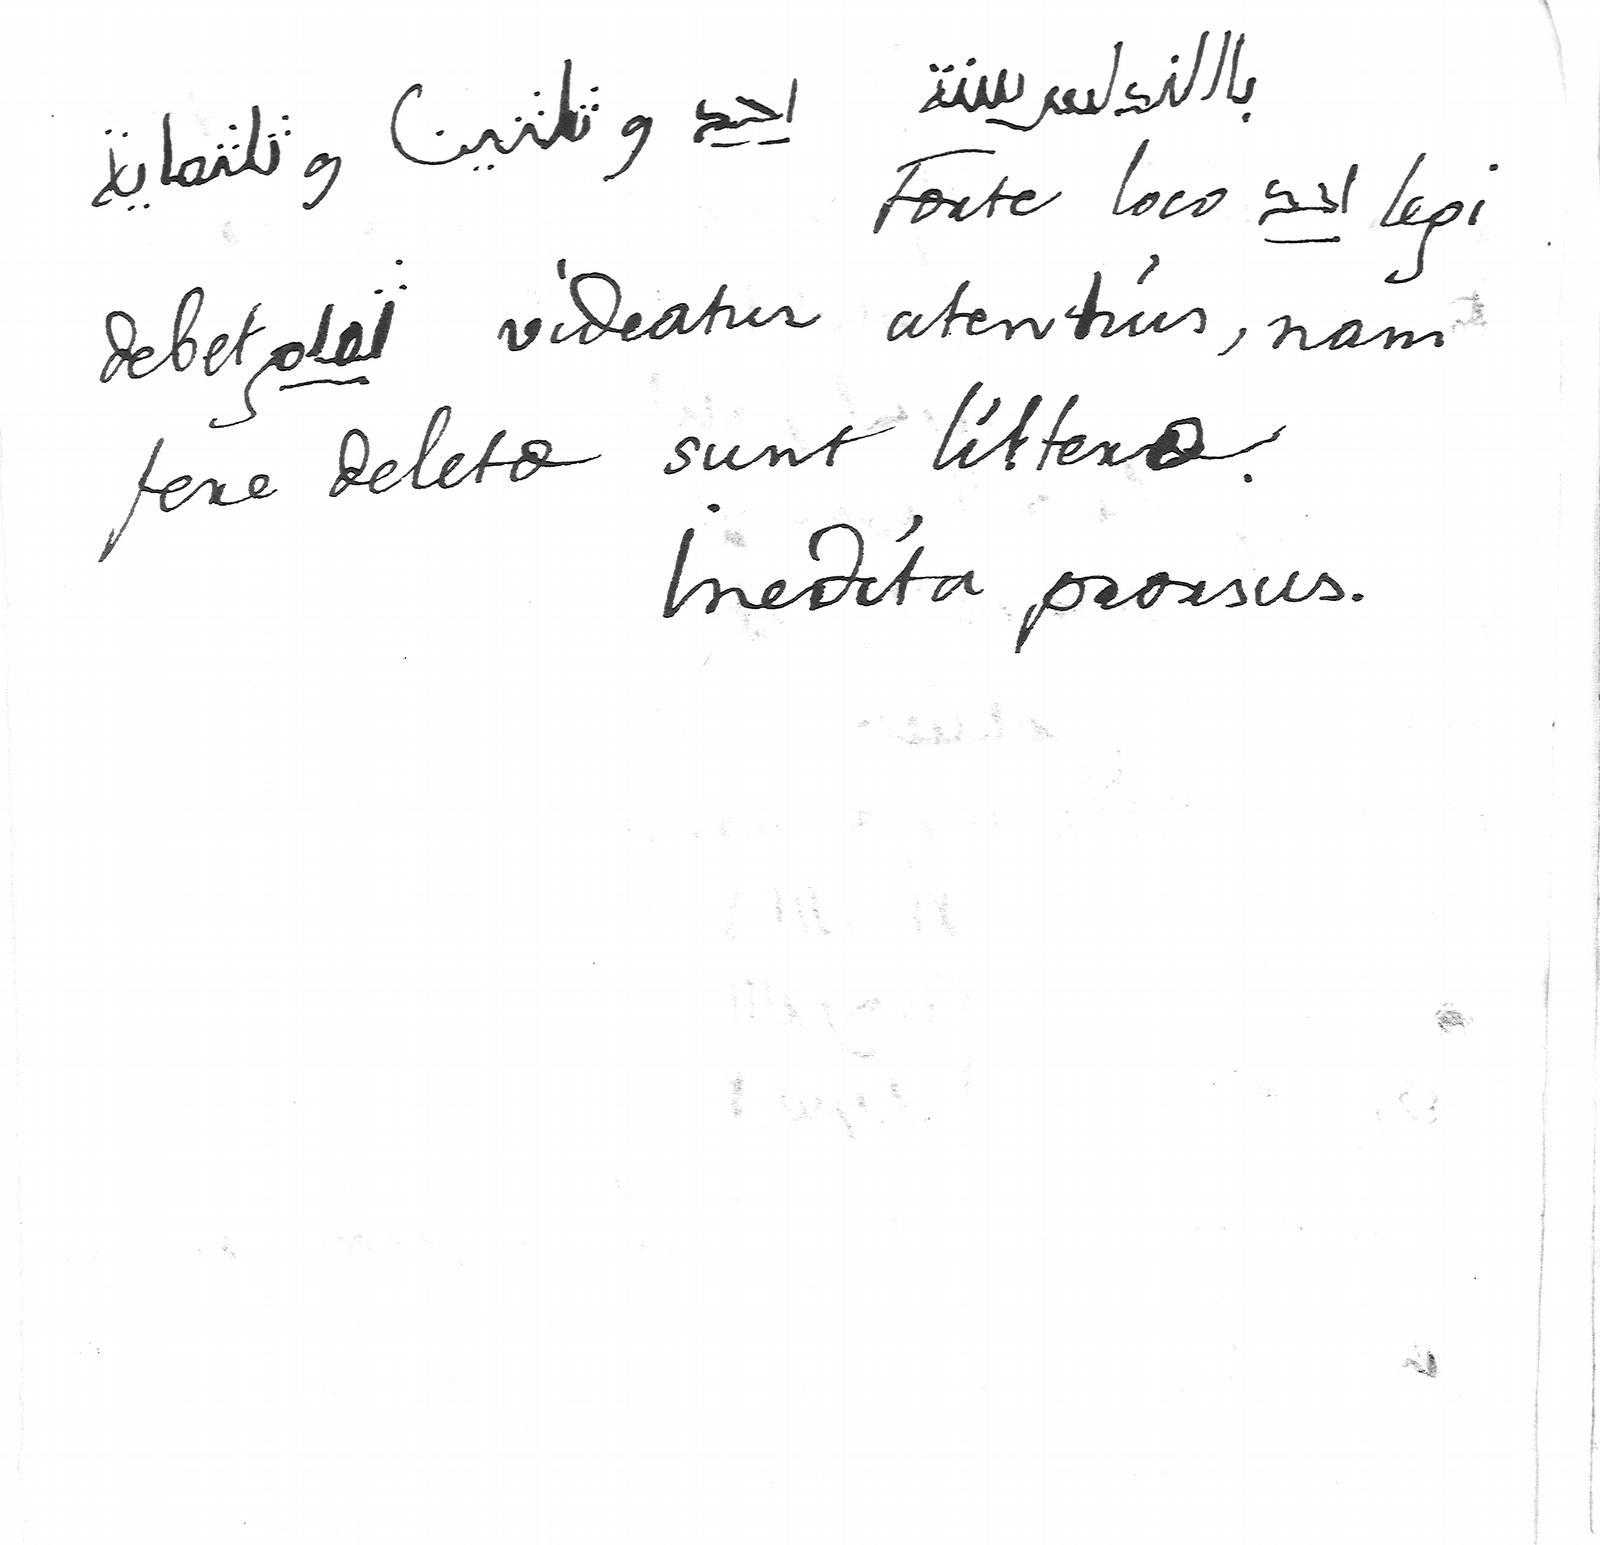 بالاندلس سنة احد وثلثين وثلثماية
Forte loco احد legi
debet ثمان videatur atentius, nam
fere deletæ sunt litteræ.
Inedita prorsus.